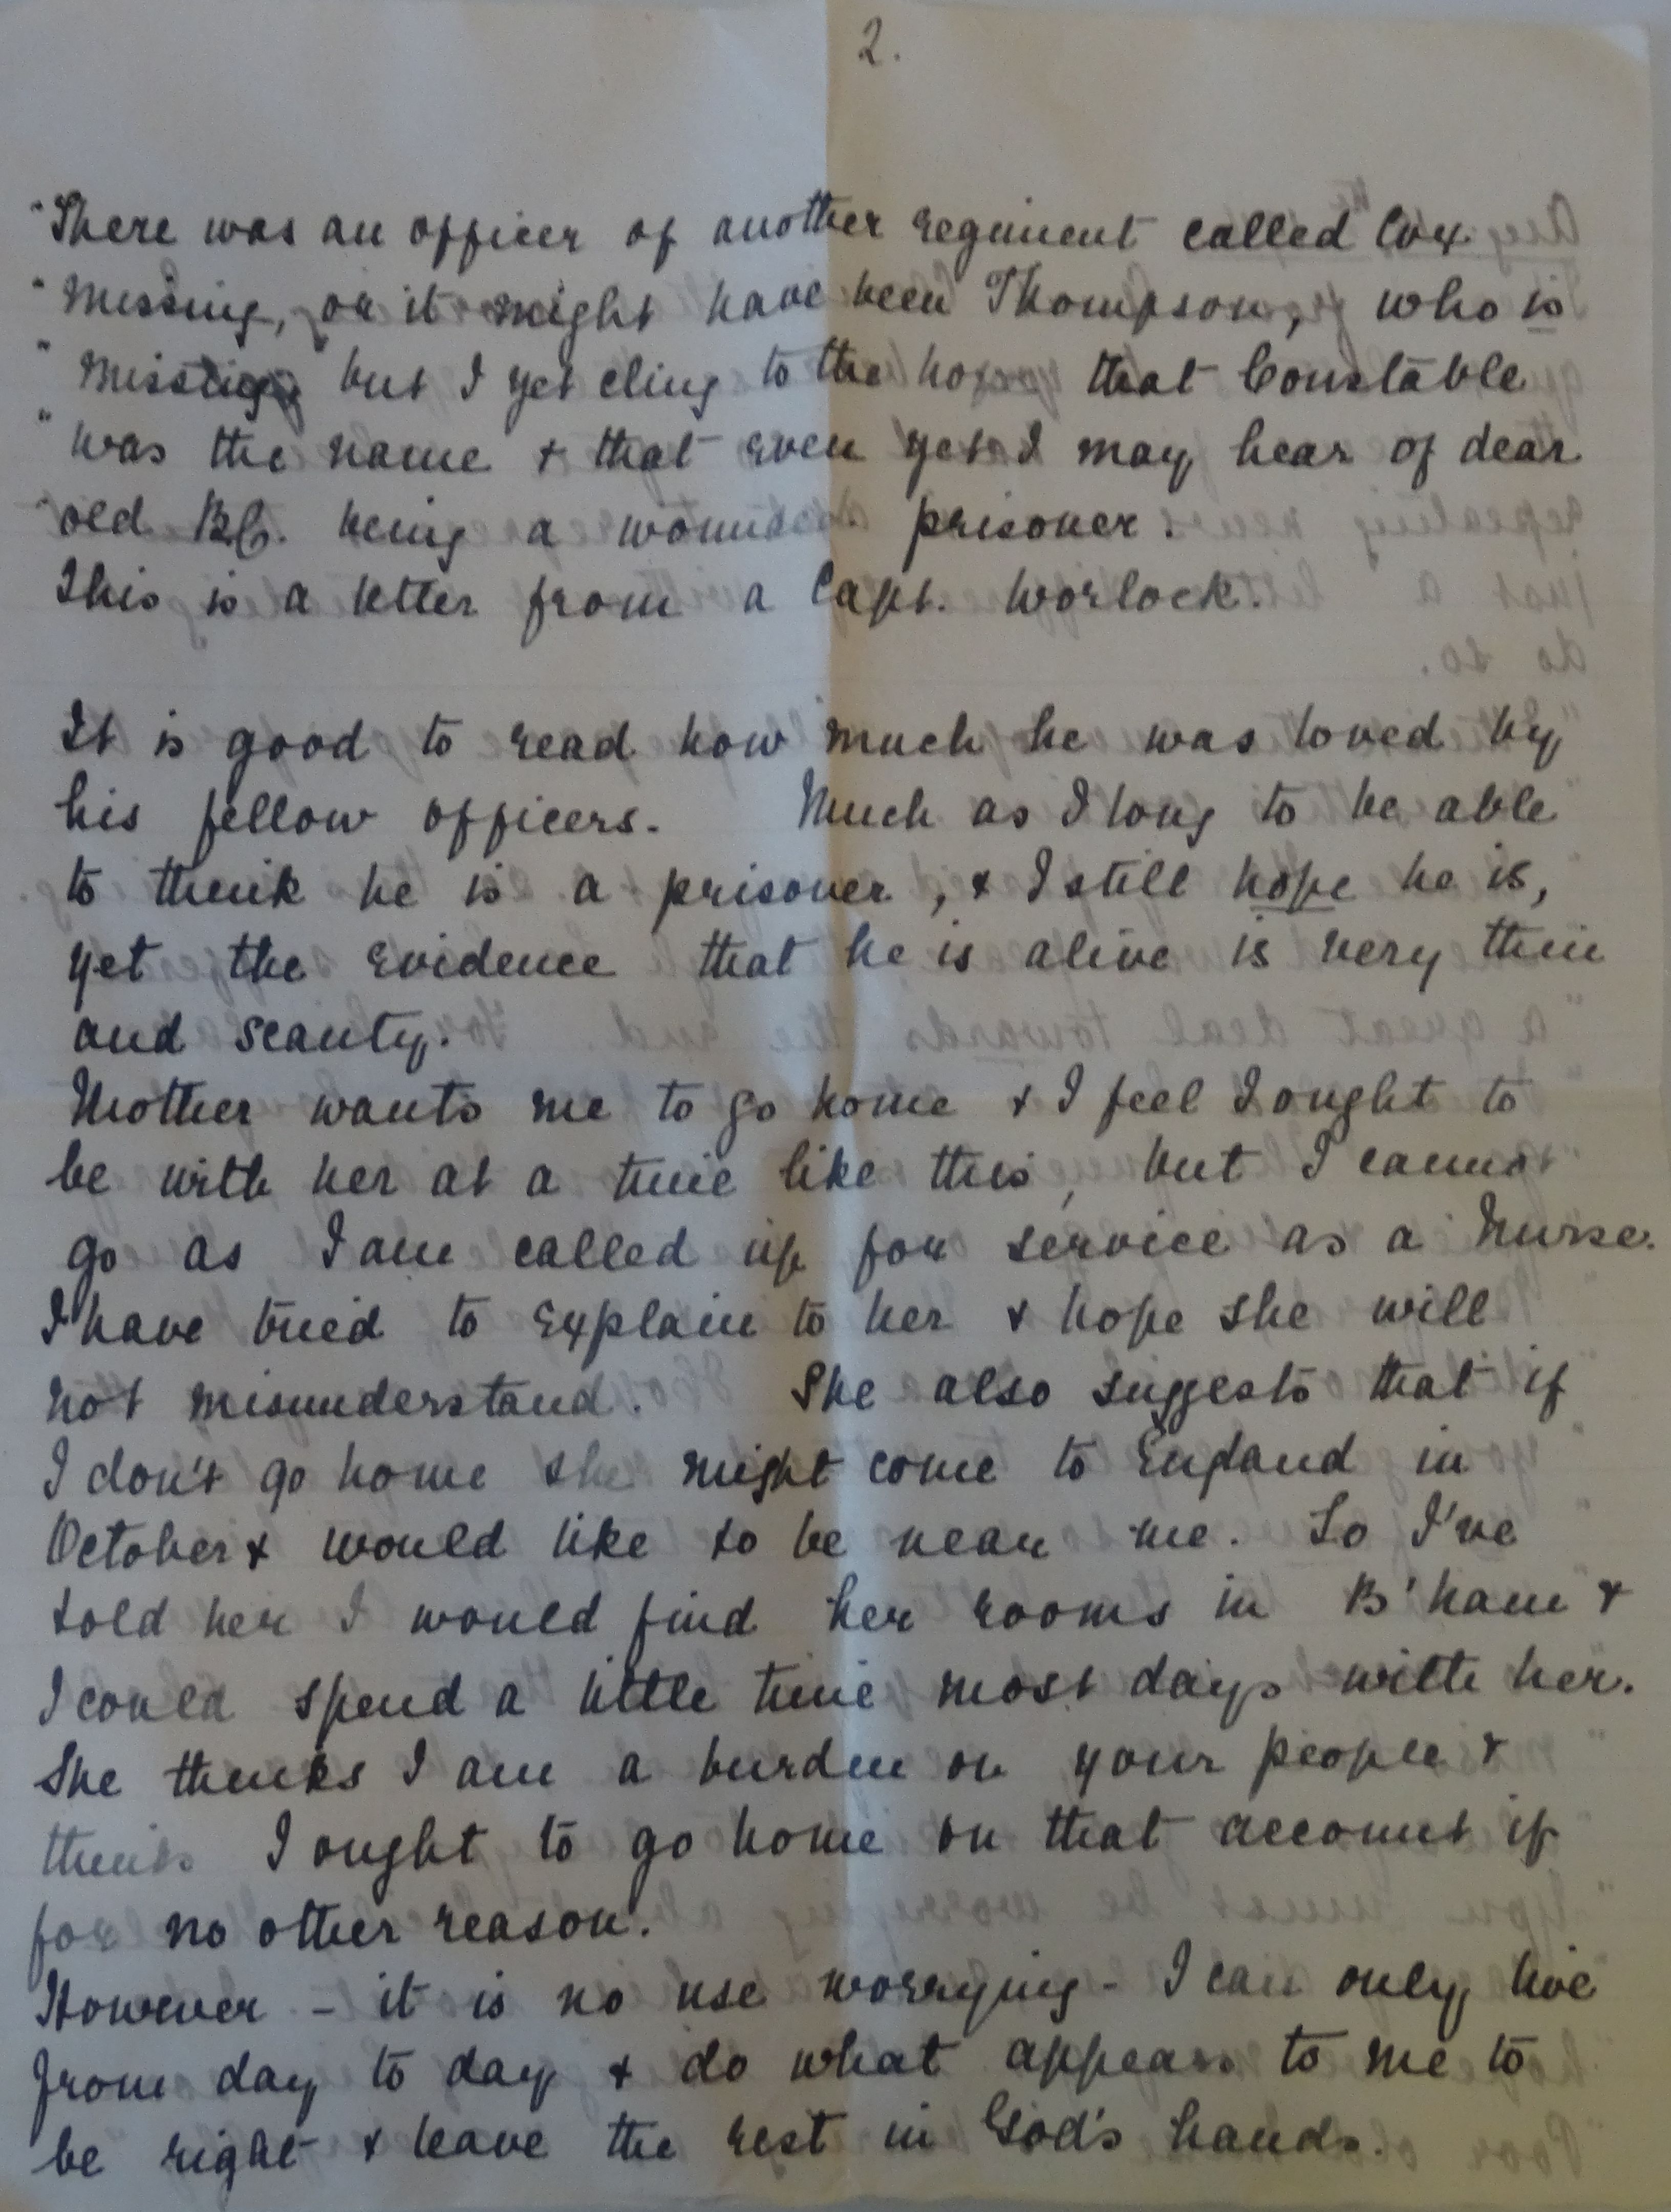 2.
"There was an officer of another regiment called Cox
"missing, or it might have been Thompson, who is
"missing but I yet cling to the hope that Constable
"was the name & that even yet I may hear of dear
"old B.C. being a wounded prisoner.
This is a letter from a Capt. Worlock.
It is good to read how much he was loved by
his fellow officers. Much as I long to be able
to think he is a prisoner, & I still hope he is,
yet the evidence that he is alive is very thin
and scanty.
Mother wants me to go home & I feel I ought to
be with her at a time like this, but I cannot
go as I am called up for service as a Nurse.
I have tried to explain to her & hope she will
not misunderstand. She also suggests that if
I don't go home she might come to England in
October & would like to be near me. So I've
told her I would find her rooms in B'ham &
I could spend a little time most days with her.
She thinks I am a burden on your people &
thinks I ought to go home on that account if
for no other reason.
However - it is no use worrying - I can only live
from day to day & do what appears to me to
be right & leave the rest in God's hands.